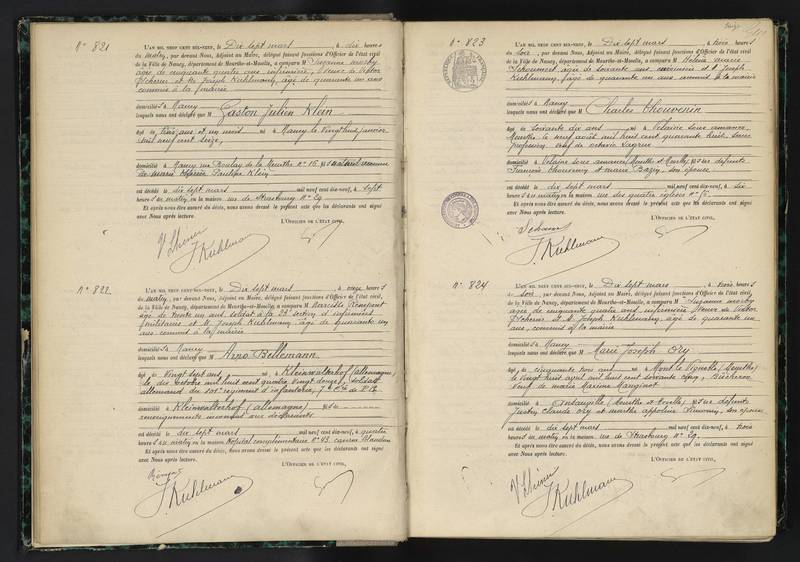 N° 821
L'AN MIL NEUF CENT DIX-NEUF, le Dix sept mars, à dix heures
du matin, par devant Nous, Adjoint au Maire, délégué faisant fonctions d'Officier de l'état civil
de la Ville de Nancy, département de Meurthe-et-Moselle, a comparu M Suzanne
agée de cinquante quatre ans infirmière, Veuve de Victor
et M Joseph Kuhlmann, âgé de quarante un ans
commis à la mairie
domiciliés à Nancy
lesquels nous ont déclaré que M Gaston Julien Klein
âgé de trois ans et un mois né à Nancy le vingt huit janvier
mil neuf cent seize,
domicilié à Nancy rue Boulay de la Meurthe n° 15
de Marie Pauline Klein
est décédé le dix sept mars mil neuf cent dix-neuf, à sept
heures du matin, en la maison rue de Strasbourg n° 29
Et après nous être assuré du décès, nous avons dressé le présent acte que les déclarants ont signé
avec Nous après lecture.
L'OFFICIER DE L'ÉTAT CIVIL,
J. Kuhlmann
N° 822
L'AN MIL NEUF CENT DIX-NEUF, le Dix sept mars, à onze heures
du matin, par devant Nous, Adjoint au Maire, délégué faisant fonctions d'Officier de l'état civil,
de la Ville de Nancy, département de Meurthe-et-Moselle, a comparu M Narcisse
âgé de trente un ans, soldat à la 23e section d'infirmiers
militaires et M Joseph Kuhlmann, âgé de quarante un
ans commis à la mairie
domiciliés à Nancy
lesquels nous ont déclaré que M Arno Bellemann
âgé de vingt sept ans né à Kleinwalterhof (allemagne)
le dix octobre mil huit cent quatre vingt douze, soldat
allemand du 102e regiment d'infanterie,
domicilié à Kleinwalterhof (allemagne) fils de
renseignements inconnus aux déclarants
est décédé le dix sept mars mil neuf cent dix-neuf, à quatre
heures du matin, en la maison hôpital complémentaire n° 43 caserne Blandan
Et après nous être assuré du décès, nous avons dressé le présent acte que les déclarants ont signé
avec Nous après lecture.
L'OFFICIER DE L'ÉTAT CIVIL,
J. Kuhlmann
N° 823
L'AN MIL NEUF CENT DIX-NEUF, le Dix sept mars, à trois heures
du soir, par devant Nous, Adjoint au Maire, délégué faisant fonctions d'Officier de l'état civil
de la Ville de Nancy, département de Meurthe-et-Moselle, a comparu M
agée de soixante ans et M Joseph
Kuhlmann, âgé de quarante un ans, commis à la mairie
domiciliés à Nancy
lesquels nous ont déclaré que M Charles Thouvenin
âgé de soixante dix ans né à Velaine sous amance,
Meurthe, le neuf août mil huit cent quarante huit, sans
profession, veuf de Octavie
domicilié à Velaine sous amance (Meurthe et Moselle) fils de défunts
François Thouvenin et Marie Bazin, son épouse
est décédé le dix sept mars mil neuf cent dix-neuf, à dix
heures du matin, en la maison rue des quatre églises n° 5
Et après nous être assuré du décès, nous avons dressé le présent acte que les déclarants ont signé
avec Nous après lecture.
L'OFFICIER DE L'ÉTAT CIVIL,
J. Kuhlmann
N° 824
L'AN MIL NEUF CENT DIX-NEUF, le Dix sept mars, à trois heures
du soir, par devant Nous, Adjoint au Maire, délégué faisant fonctions d'Officier de l'état civil
de la Ville de Nancy, département de Meurthe-et-Moselle, a comparu M Suzanne
agée de cinquante quatre ans infirmière Veuve de Victor
et M Joseph Kuhlmann, âgé de quarante un
ans, commis à la mairie
domiciliés à Nancy
lesquels nous ont déclaré que M Marie Joseph Ory
âgé de cinquante trois ans né à Mont le Vignoble (Meurthe)
le vingt huit avril mil huit cent soixante cinq,
veuf de Marie Marina Manginot
domicilié à (Meurthe et Moselle) fils de défunts
Justin Claude Ory et Marthe Appoline son épouse
est décédé le dix sept mars mil neuf cent dix-neuf, à trois
heures du matin, en la maison rue de Strasbourg n° 29
Et après nous être assuré du décès, nous avons dressé le présent acte que les déclarants ont signé
avec Nous après lecture.
L'OFFICIER DE L'ÉTAT CIVIL,
J. Kuhlmann